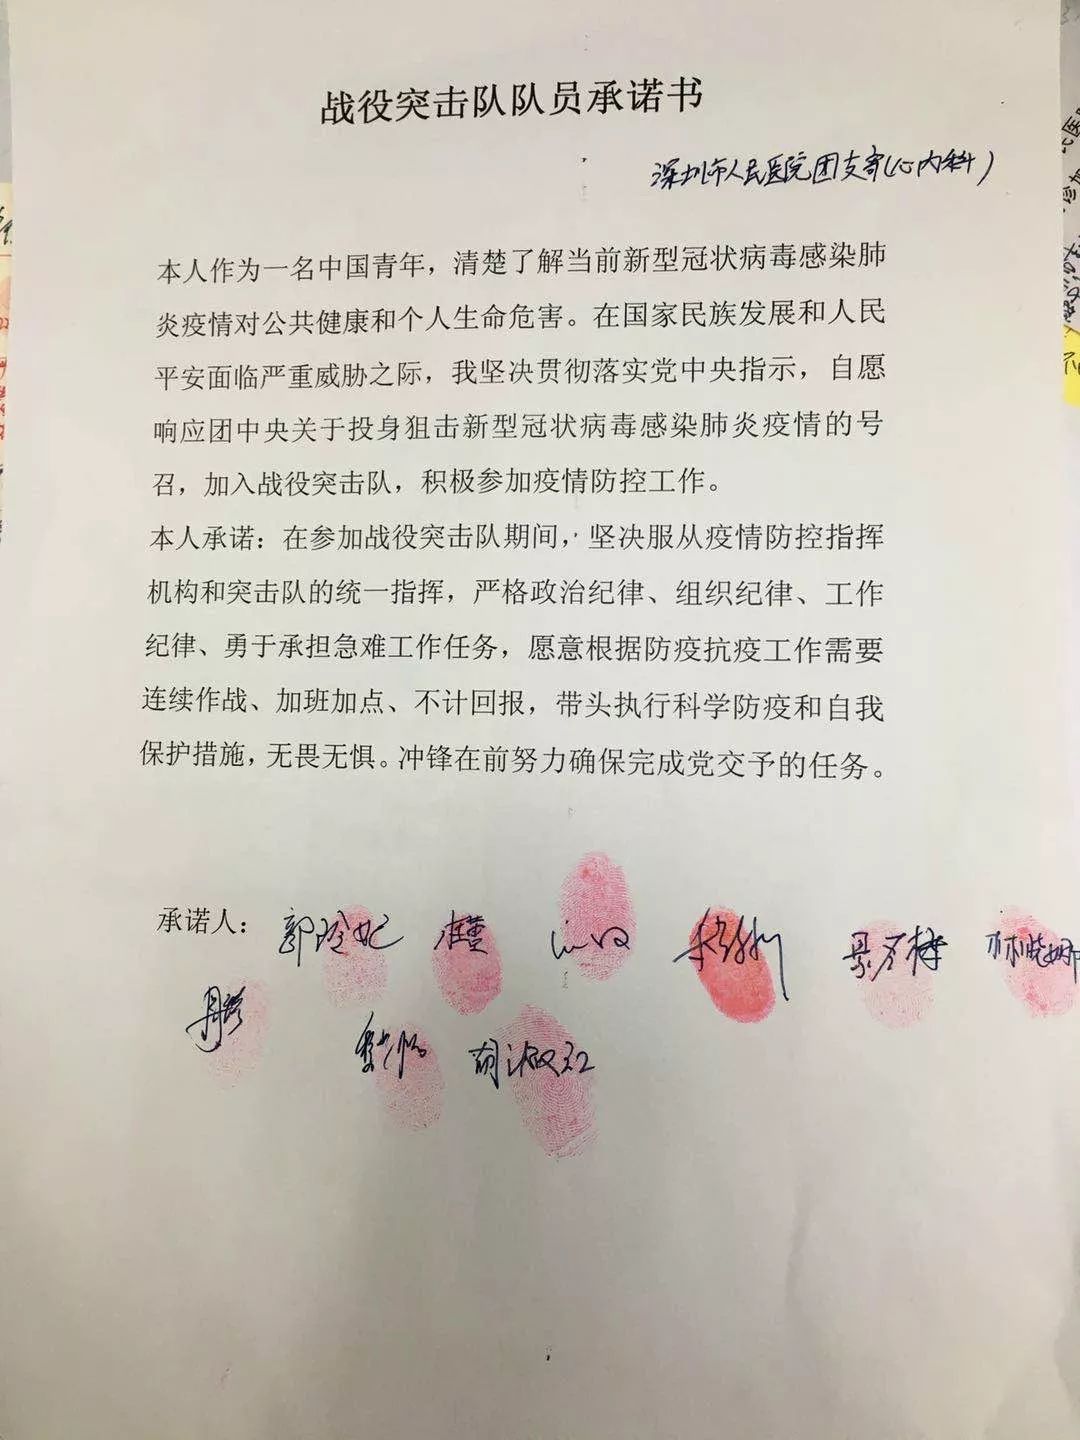 战役突击队队员承诺书
深圳市人民医院团支部(心内科)
本人作为一名中国青年，清楚了解当前新型冠状病毒感染肺
炎疫情对公共健康和个人生命危害。在国家民族发展和人民
平安面临严重威胁之际，我坚决贯彻落实党中央指示，自愿
响应团中央关于投身狙击新型冠状病毒感染肺炎疫情的号
召，加入战役突击队，积极参加疫情防控工作。
本人承诺：在参加战役突击队期间，坚决服从疫情防控指挥
机构和突击队的统一指挥，严格政治纪律、组织纪律、工作
纪律、勇于承担急难工作任务，愿意根据防疫抗疫工作需要
连续作战、加班加点、不计回报，带头执行科学防疫和自我
保护措施，无畏无惧。冲锋在前努力确保完成党交予的任务。
承诺人： 郭玲妃 林晓娜
胡淑红